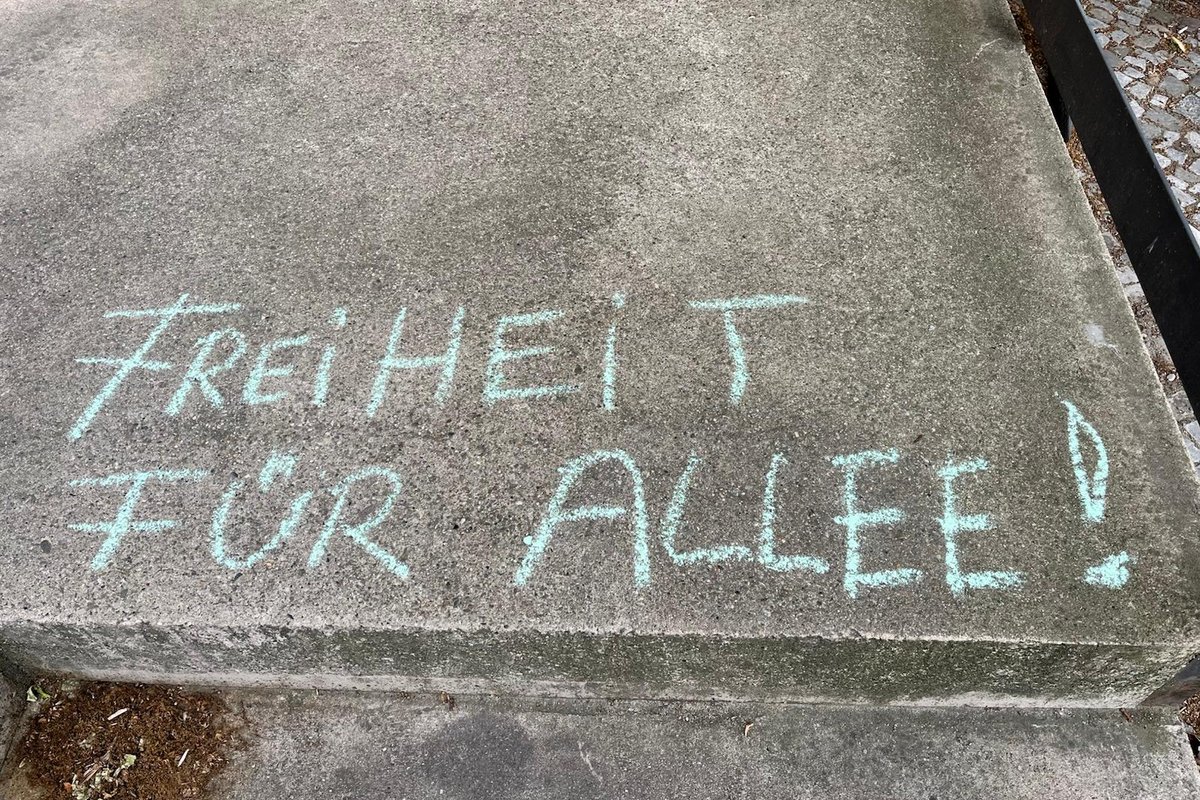 FREiHEiT
FÜR ALLEE!